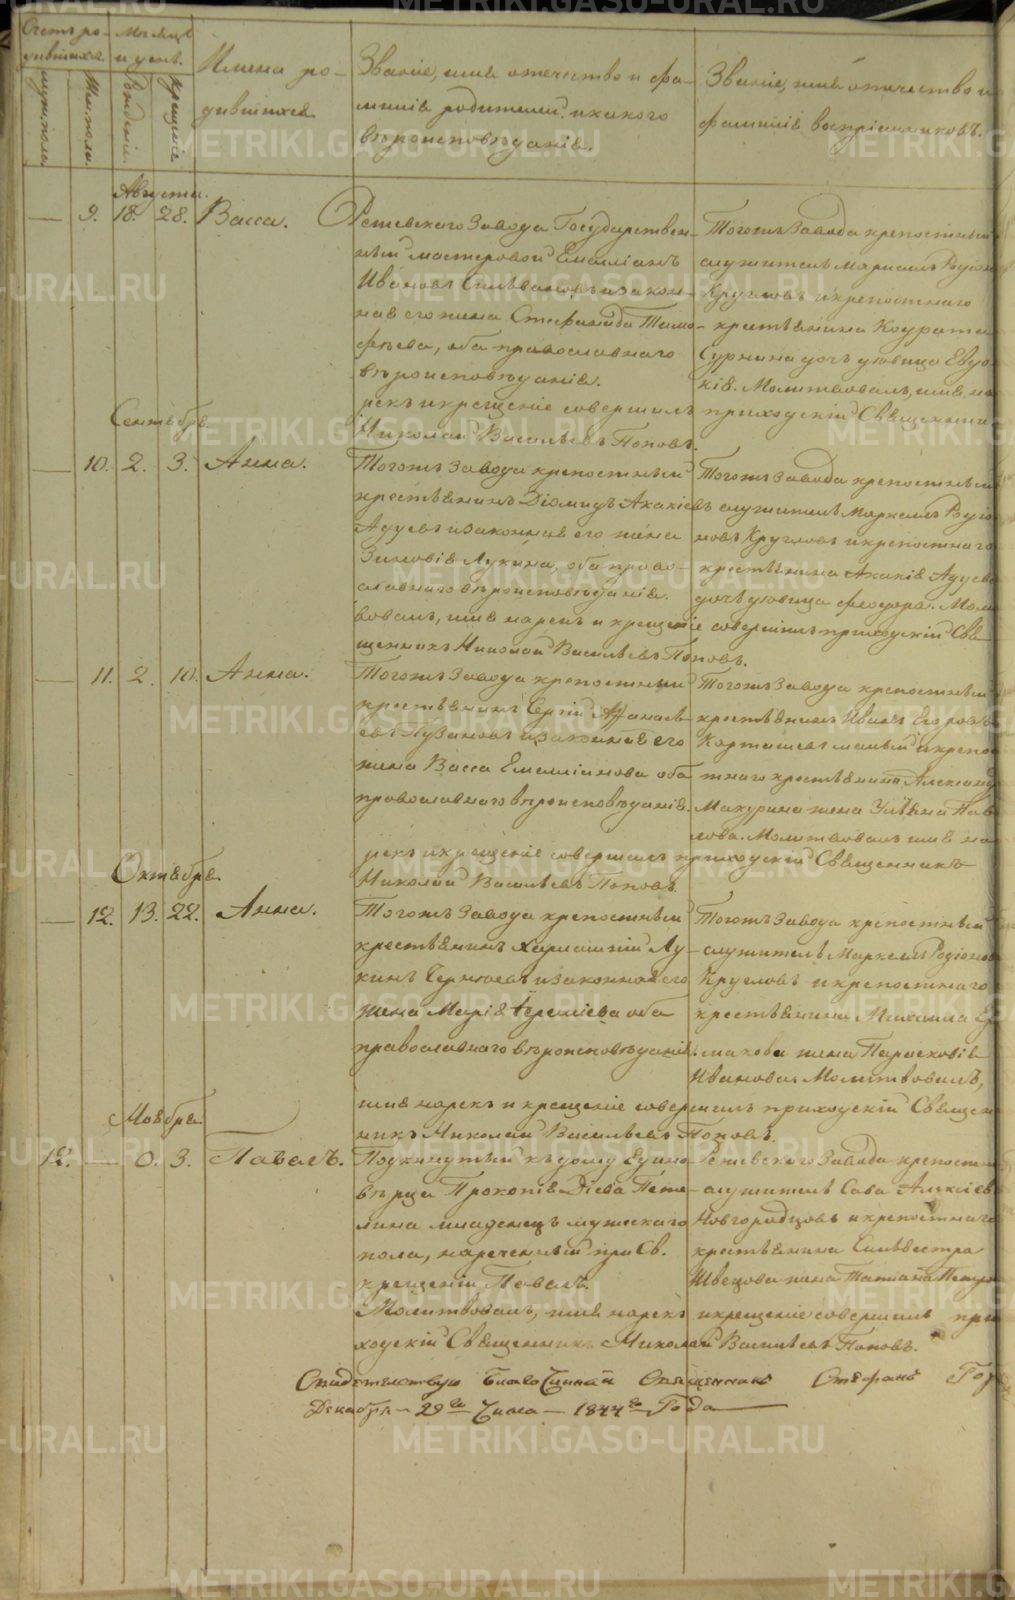 Счетъ ро-
дившихся.
Мѣсяцъ
и день.
Имена ро-
дившихся.
Званіе, имя отчество и фа-
милія родителей, и какого
вѣроисповѣданія.
Званіе, имя отчество и
фамилія воспріемниковъ.
муж. пола.
жен. пола.
рожденія.
крещенія
Августа.
— 9. 18. 28. Васса.
Режевскаго Завода Государствен-
ный мастеровой Емеліанъ
Ивановъ и закон-
ная его жена Стефанида Тимо-
фѣева, оба православнаго
вѣроисповѣданія.
Тогожъ Завода крепостный
служитель Маркелъ Родіон
Кругловъ и крепостнаго
крестьянина Кодрата
Сурнина дочь дѣвица Евдо-
кія. Молитвовалъ, имя на
рекъ и крещеніе совершилъ приходскій Священникъ
Николай Васильевъ Поповъ.
Сентября
— 10. 2. 3. Анна.
Тогожъ Завода крепостный
крестьянинъ Діомидъ Акакіевъ
и законная его жена
Зиновія Лукина, оба право-
славнаго вѣроисповѣданія.
Тогожъ Завода крепостный
служитель Маркелъ Родіо
новъ Кругловъ и крепостнаго
крестьянина Акакія
дочь дѣвица Феодора. Моли
вовалъ, имя нарекъ и крещеніе совершилъ приходскій Свя
щенникъ Николай Васильевъ Поповъ.
— 11. 2. 10. Анна.
Тогожъ Завода крепостный
крестьянинъ Сергій Афанась-
евъ Пузановъ и законная его
жена Васса Емелліанова оба
православнаго вѣроисповѣданія.
Тогожъ Завода крепостный
крестьянинъ Иванъ Егоровъ
Карташевъ малый и крепос
тнаго крестьянина Александр
Макурина жена Улѣяна Пав
лова. Молитвовалъ имя на
рекъ и крещеніе совершилъ приходскій Священникъ
Николай Васильевъ Поповъ.
Октября.
— 12. 13. 22. Анна.
Тогожъ Завода крепостный
крестьянинъ Харлампій Лу-
кинъ и законная его
жена Марія оба
православнаго вѣроисповѣданія.
Тогожъ Завода крепостный
служитель Маркелъ Родіонов
Кругловъ и крепостнаго
крестьянина Михаила Ер
макова жена Парасковія
Иванова. Молитвовалъ,
имя нарекъ и крещеніе совершилъ приходскій Священ
никъ Николай Васильевъ Поповъ.
Ноября.
12. — 0. 3. Павелъ.
Подкинутый къ дому Едино-
вѣрца Прокопія Діева Пете-
лина младенецъ мужескаго
пола, нареченный при Св.
крещеніи Павелъ.
Режевскаго Завода крепостн
служитель Сава Алексіевъ
Новгородцовъ и крепостнаго
крестьянина Силвестра
Швецова жена Татіана Петро
Молитвовалъ, имя нарекъ и крещеніе совершилъ при
ходскій Священникъ Николай Васильевъ Поповъ.
Свидетельствую Благочинный Священникъ Стефанъ
Декабря — 29го Числа — 1844го Года
METRIKI.GASO-URAL.RU